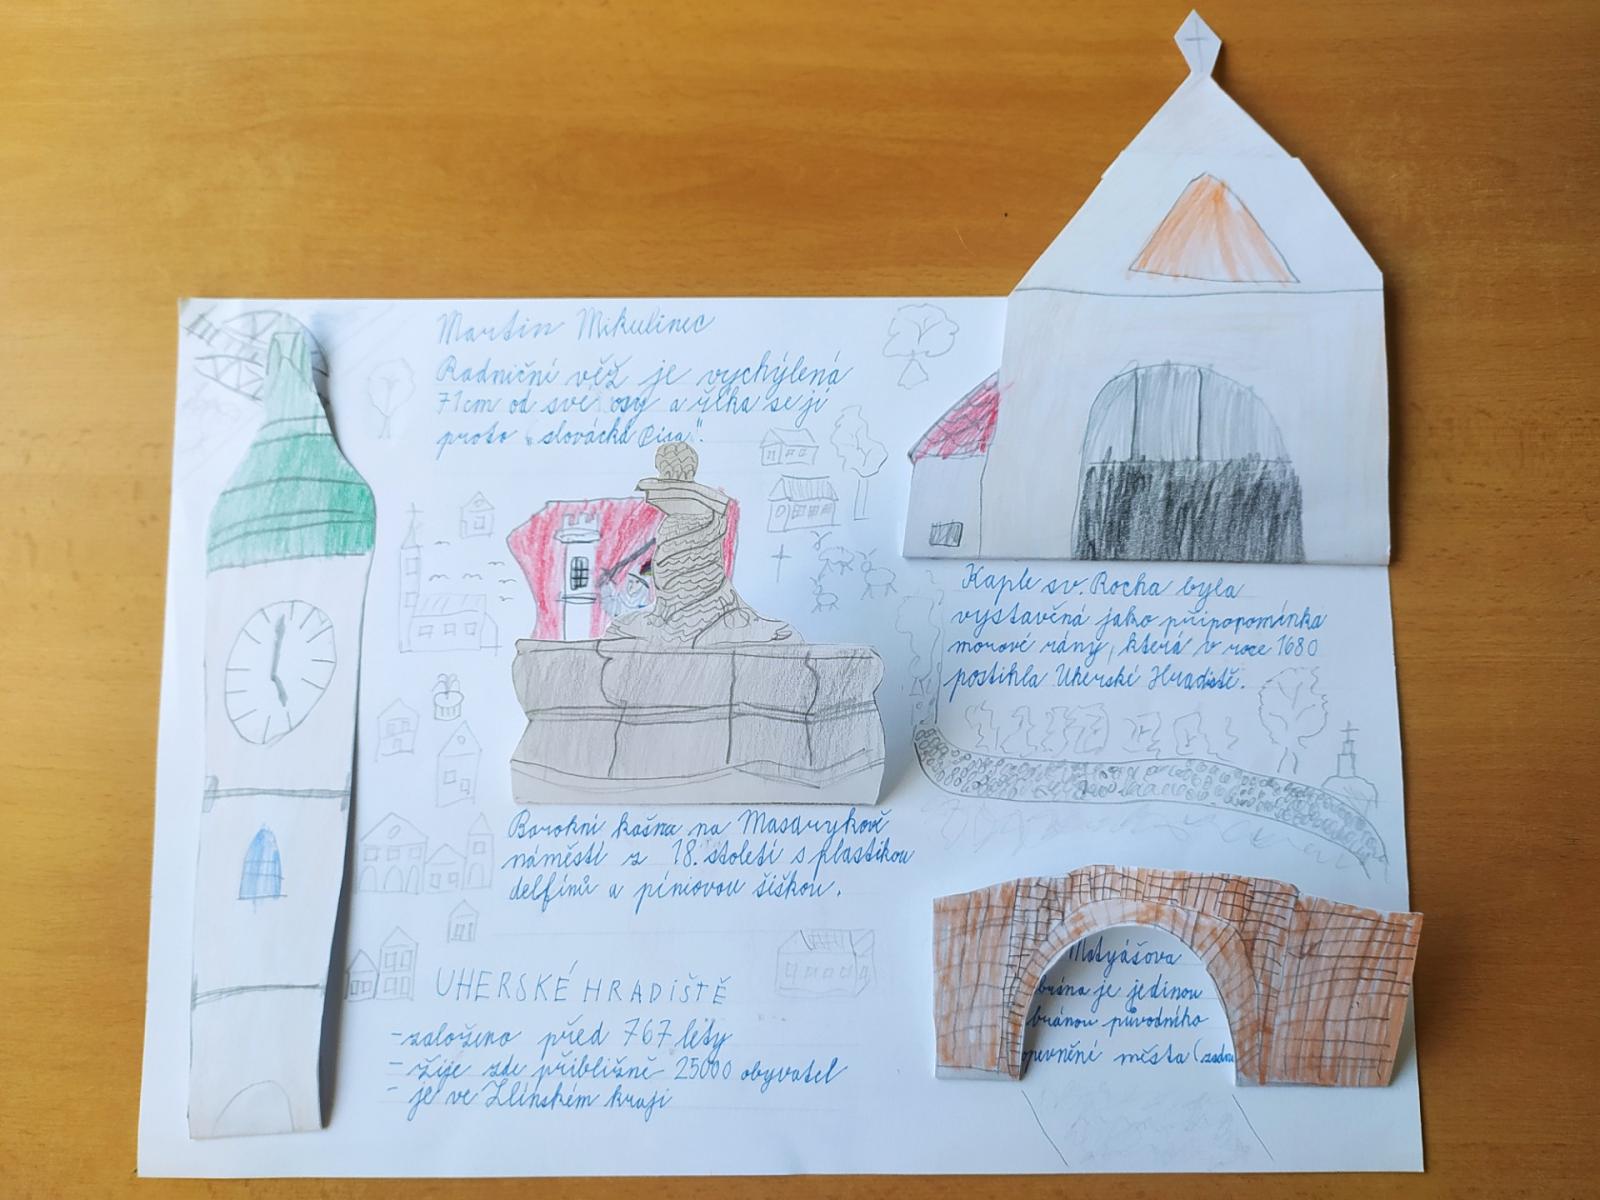 Martin Mikulinec
Radniční věž je vychýlená
71cm od své osy a říka se jí
proto „slovácká Pisa".
Kaple sv. Rocha byla
vystavěná jako připopomínka
morové rány, která v roce 1680
postihla Uherské Hradiště.
Barokní kašna na Masarykově
náměstí z 18. století s plastikou
delfínů a piniovou šiškou.
Matyášova
brána je jedinou
bránou původního
opevnění města (zadní
UHERSKÉ HRADIŠTĚ
- založeno před 767 lety
- žije zde přibližně 25000 obyvatel
- je ve Zlínském kraji